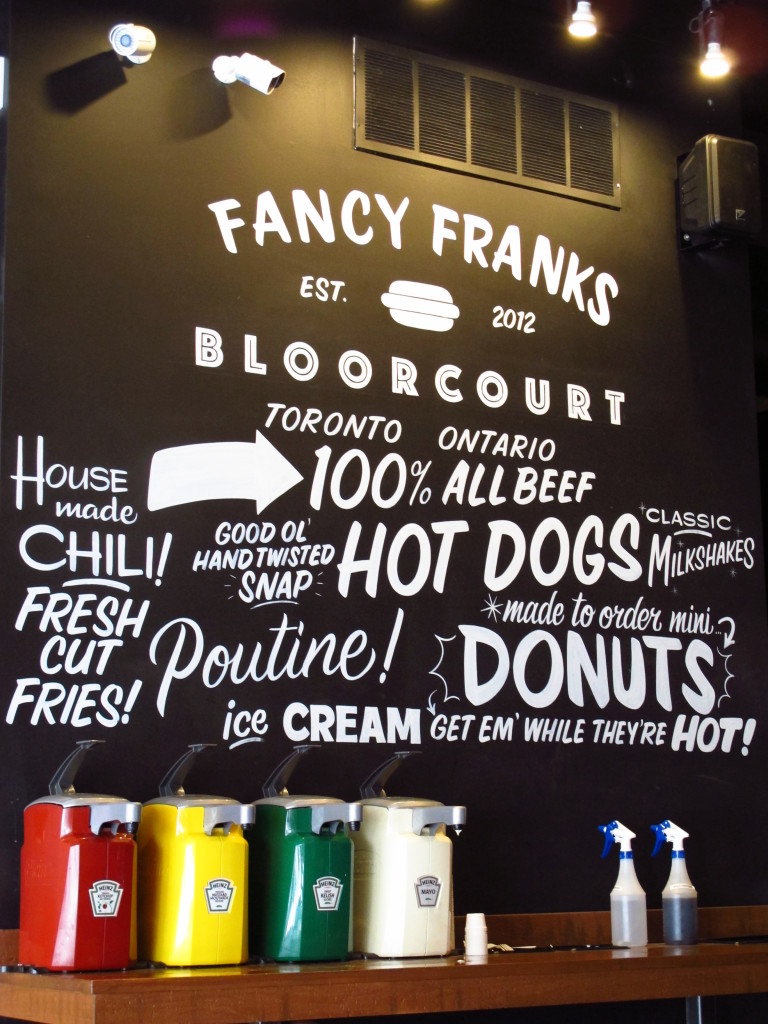 FANCY FRANKS
EST. 2012
BLOORCOURT
TORONTO ONTARIO
100% ALL BEEF
HOUSE
made
CHILI!
GOOD OL'
HAND TWISTED
SNAP
HOT DOGS
CLASSIC
MILKSHAKES
FRESH
CUT
FRIES!
Poutine!
made to order mini...
DONUTS
ice CREAM
GET EM' WHILE THEY'RE HOT!
HEINZ
HEINZ
HEINZ
RELISH
HEINZ
MAYO